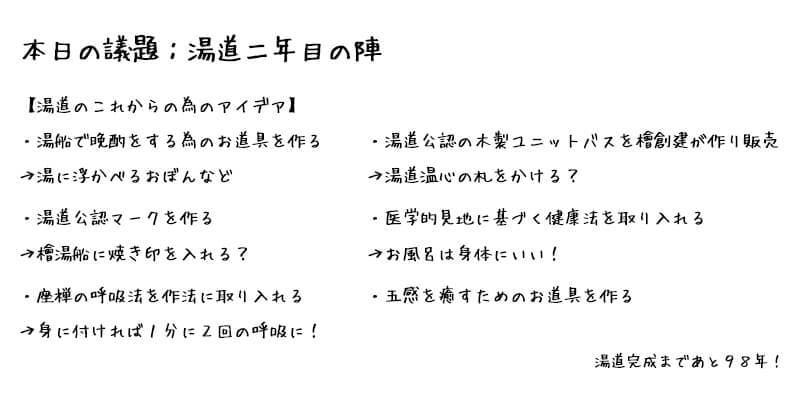 本日の議題；湯道二年目の陣
【湯道のこれからの為のアイデア】
・湯船で晩酌をする為のお道具を作る
→湯に浮かべるおぼんなど
・湯道公認マークを作る
→檜湯船に焼き印を入れる？
・座禅の呼吸法を作法に取り入れる
→身に付ければ１分に２回の呼吸に！
・湯道公認の木製ユニットバスを檜創建が作り販売
→湯道温心の札をかける？
・医学的見地に基づく健康法を取り入れる
→お風呂は身体にいい！
・五感を癒すためのお道具を作る
湯道完成まであと９８年！